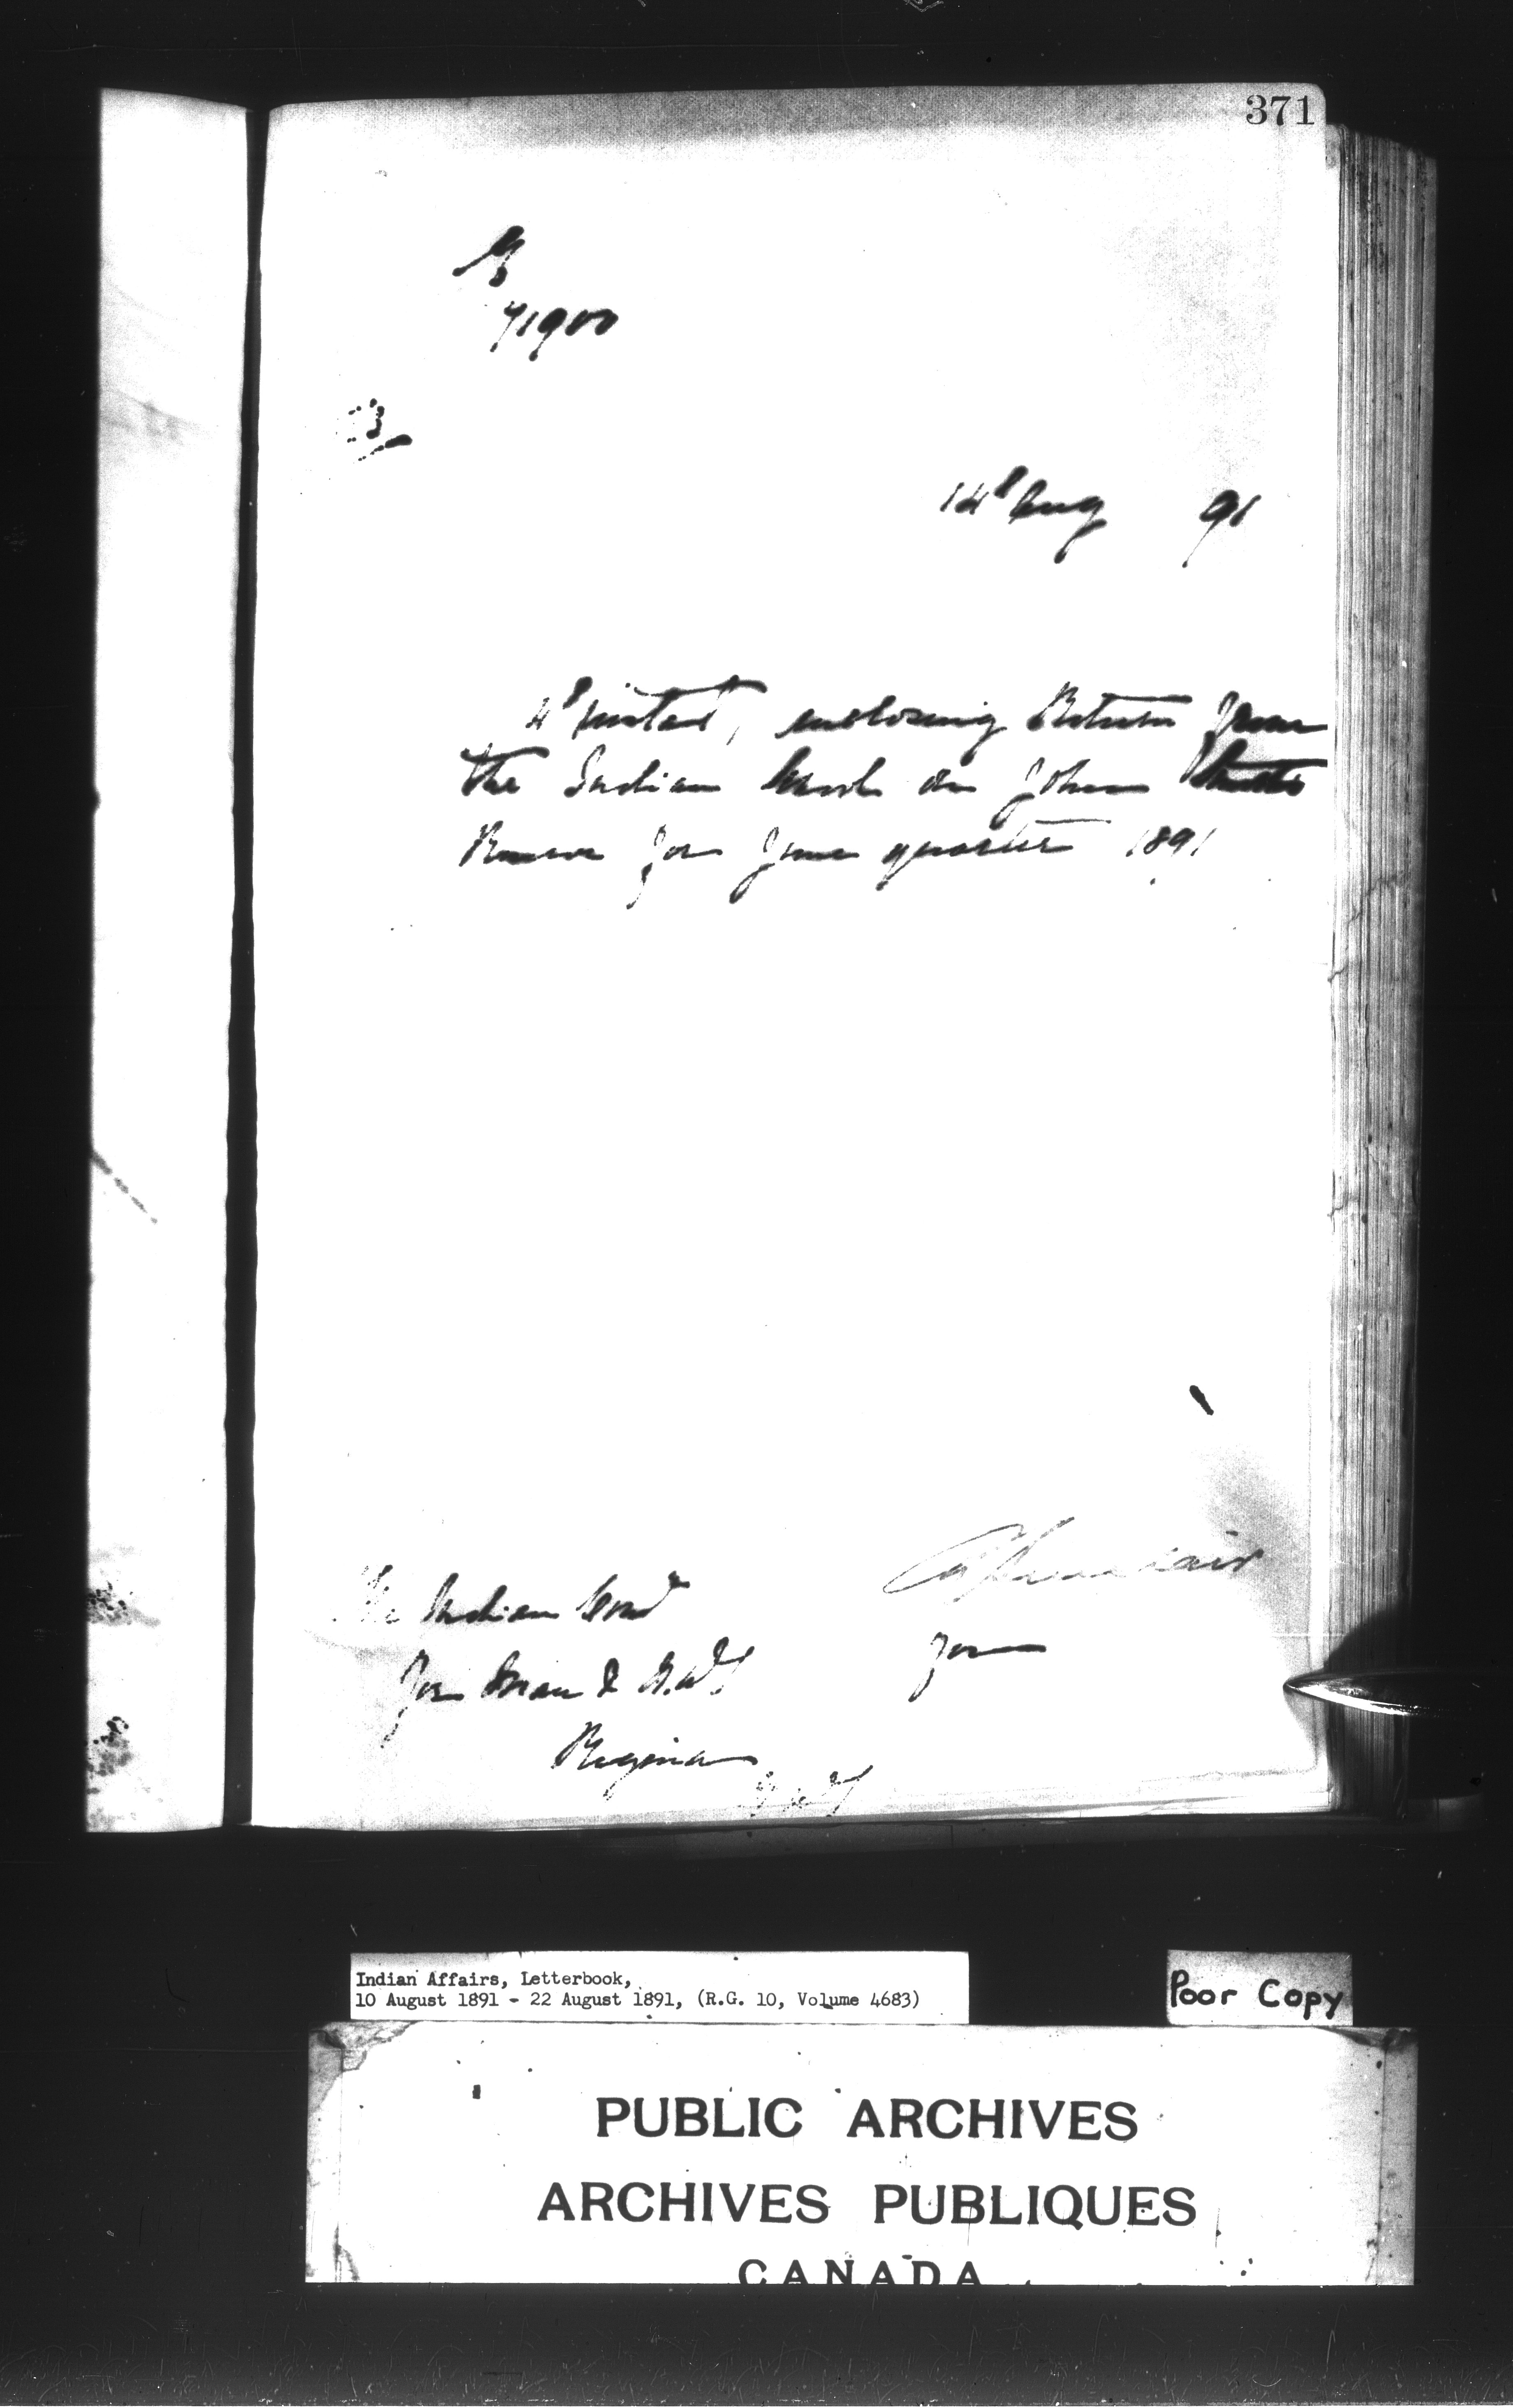 371
71900
14th Aug 91
4th instant, enclosing Return from
the Indian School on John
Reserve for June quarter 1891
The Indian Comr
for Man & N.W.T
Regina
N.W.T
for
Indian Affairs, Letterbook,
10 August 1891 - 22 August 1891, (R.G. 10, Volume 4683)
Poor Copy
PUBLIC ARCHIVES
ARCHIVES PUBLIQUES
CANADA